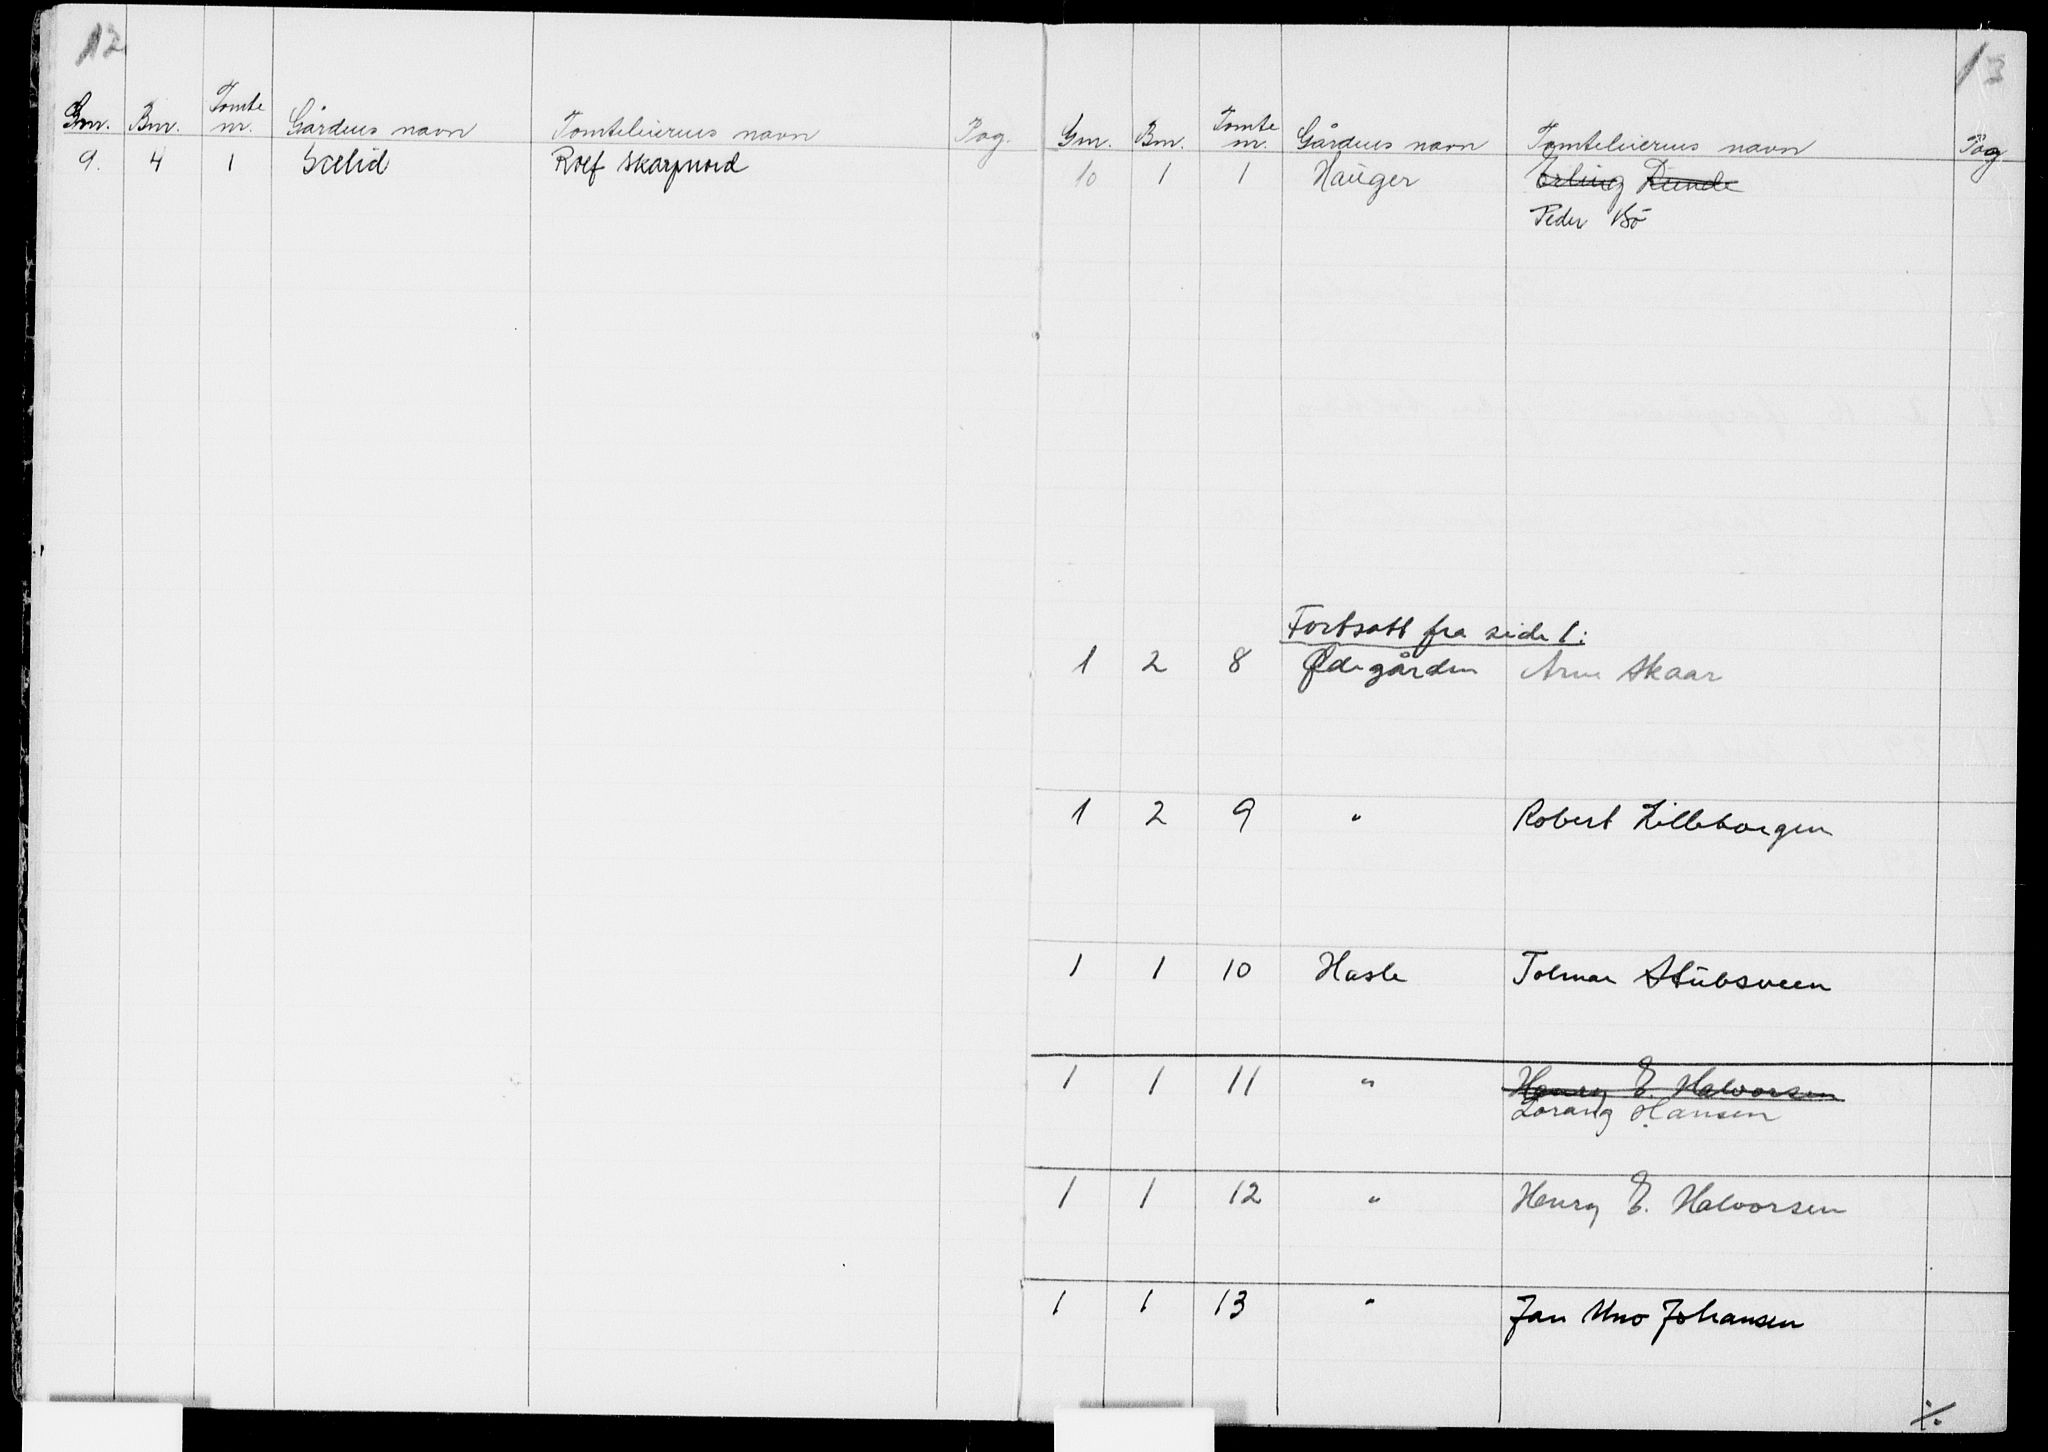 12
Gnr. Bnr. Tomte nr. Gårdens navn Tomteleierens navn Pag.
9. 4 1 Sælid Rolf Skarpnord
13
Gnr. Bnr. Tomte nr. Gårdens navn Tomteleierens navn Pag
10 1 1 Hauger Erling Lunde
Peder Bö
Fortsatt fra side 1:
1 2 8 Ødegården Arne Skaar
1 2 9 " Robert Lilleborgen
1 1 10 Hasle Tolmar Stubsveen
1 1 11 " Henry E. Halvorsen
Lorang Hansen
1 1 12 " Henry E. Halvorsen
1 1 13 " Jan Uno Johansen
./.